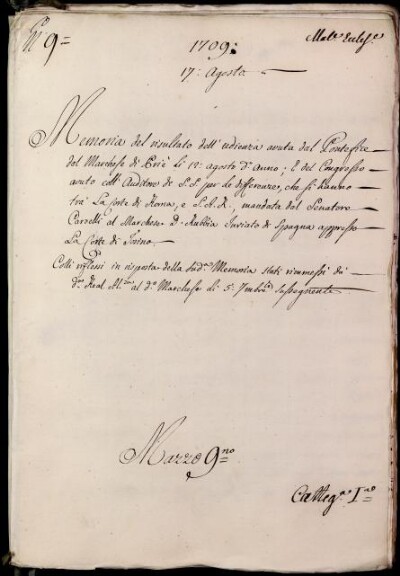 N.º 9=
Mat.e Eccles.e
1709:
17: Agosto
Memoria del risultato dell' udienza avuta dal Pontefice
dal Marchese di Priè li 12: agosto d.º Anno; E del Congresso
avuto coll' Auditore di S. S. per le differenze, che si hanno
trà La Corte di Roma, e S.A.R., mandata dal Senatore
al Marchese D. Rubbia Inviato di Spagna appresso
La Corte di Torino
Colli riflessi in risposta della sud.a Memoria stati rimmessi da
S.a Real Al.za al d.º Marchese li 5: 7mbre sussequente
Mazzo 9.no
Categ.a I.ma